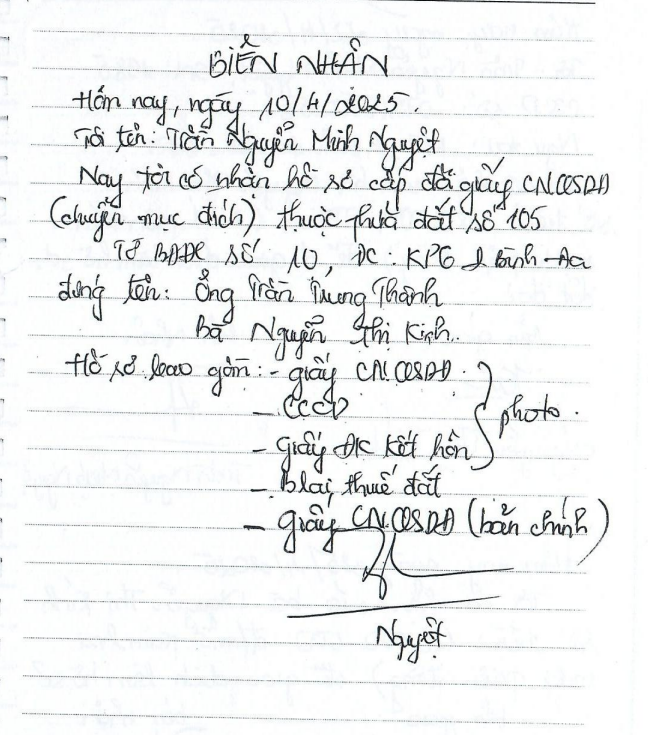 BIÊN NHẬN
Hôm nay, ngày 10/4/2025.
Tôi tên: Trần Nguyễn Minh Nguyệt
Nay tôi có nhận hồ sơ cấp đổi giấy CN.QSDĐ
(chuyển mục đích) thuộc thửa đất số 105
Tờ BĐĐC số 10, ĐC: KP6
đứng tên: Ông Trần Trung Thành
Bà Nguyễn Thị Kinh.
Hồ sơ bao gồm: - giấy CN.QSDĐ.
- CCCD
- Giấy ĐK kết hôn
photo.
- Blai thuế đất
- Giấy CN.QSDĐ (bản chính)
Nguyệt